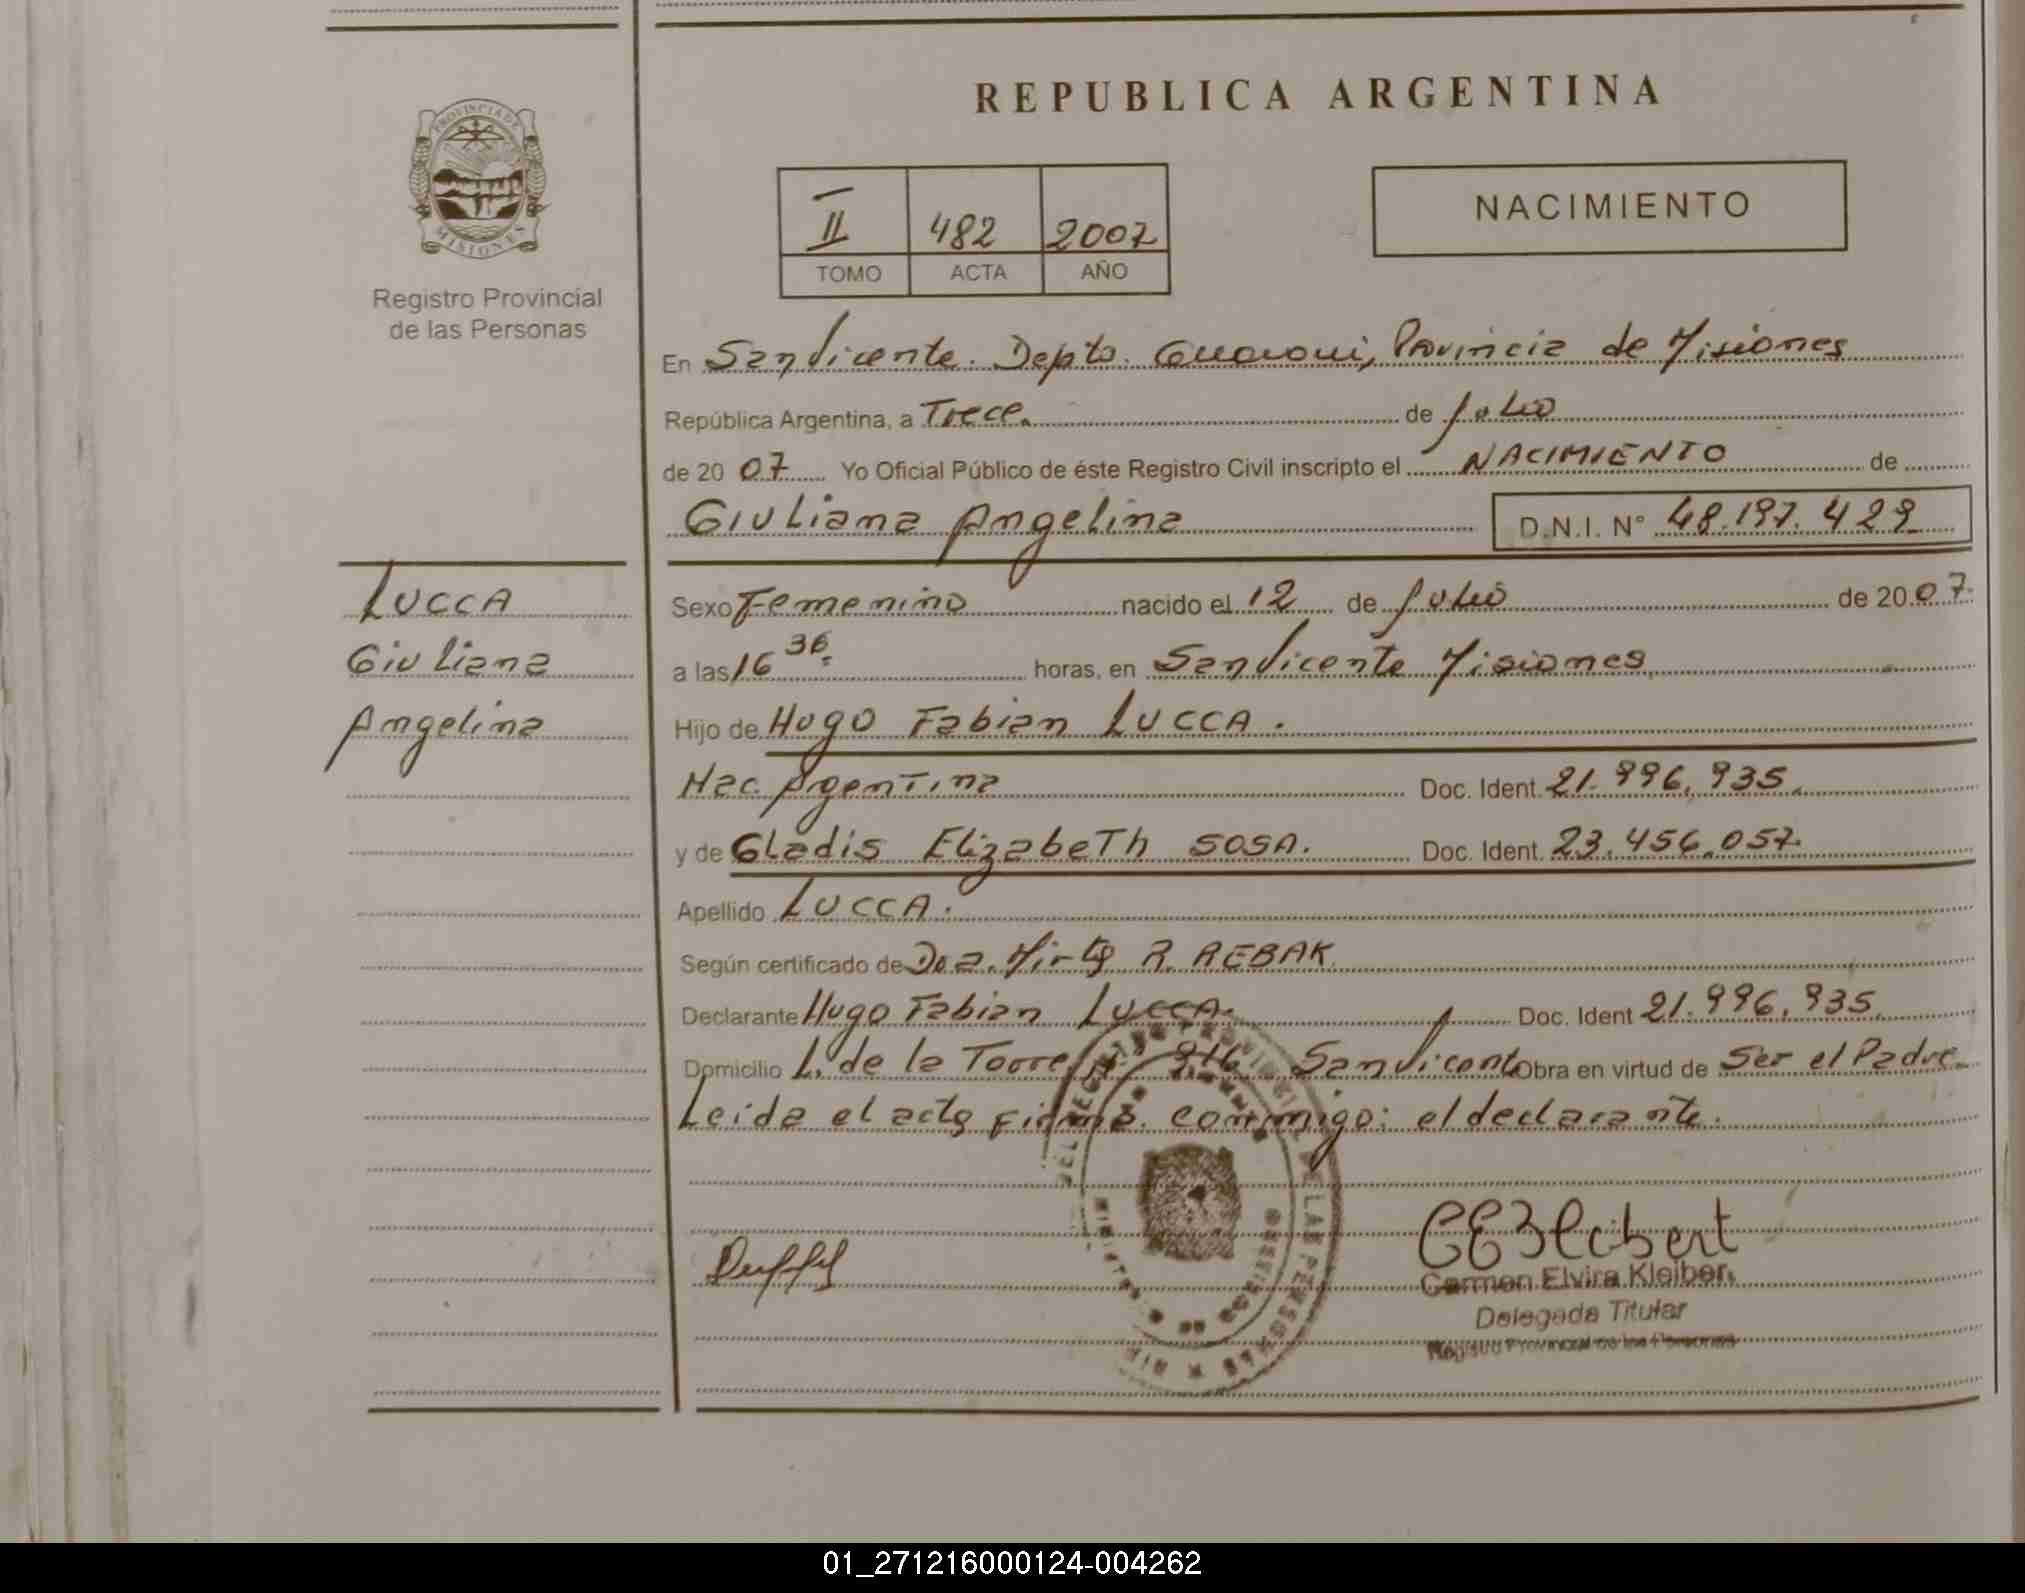 REPUBLICA ARGENTINA
PROVINCIA DE
MISIONES
Registro Provincial
de las Personas
II 482 2007
TOMO ACTA AÑO
NACIMIENTO
En San Vicente. Depto. Guarani, Provincia de Misiones
República Argentina, a Trece. de Julio
de 20 07 Yo Oficial Público de éste Registro Civil inscripto el NACIMIENTO de
Giuliana Angelina D.N.I. N° 48.197.429
LUCCA
Giuliana
Angelina
Sexo Femenino nacido el 12 de Julio de 20 07
a las 16 36. horas, en San Vicente Misiones
Hijo de Hugo Fabian LUCCA.
Nac. Argentina Doc. Ident. 21.996.935.
y de Gladis Elizabeth SOSA. Doc. Ident. 23.456.057.
Apellido LUCCA.
Según certificado de Dra. Mirta R. REBAK
Declarante Hugo Fabian LUCCA. Doc. Ident 21.996.935.
Domicilio L. de la Torre N° 916 San Vicente Obra en virtud de Ser el Padre.
Leida el acta firma conmigo: el declarante.
Carmen Elvira Kleiber
Delegada Titular
Registro Provincial de las Personas
01_271216000124-004262